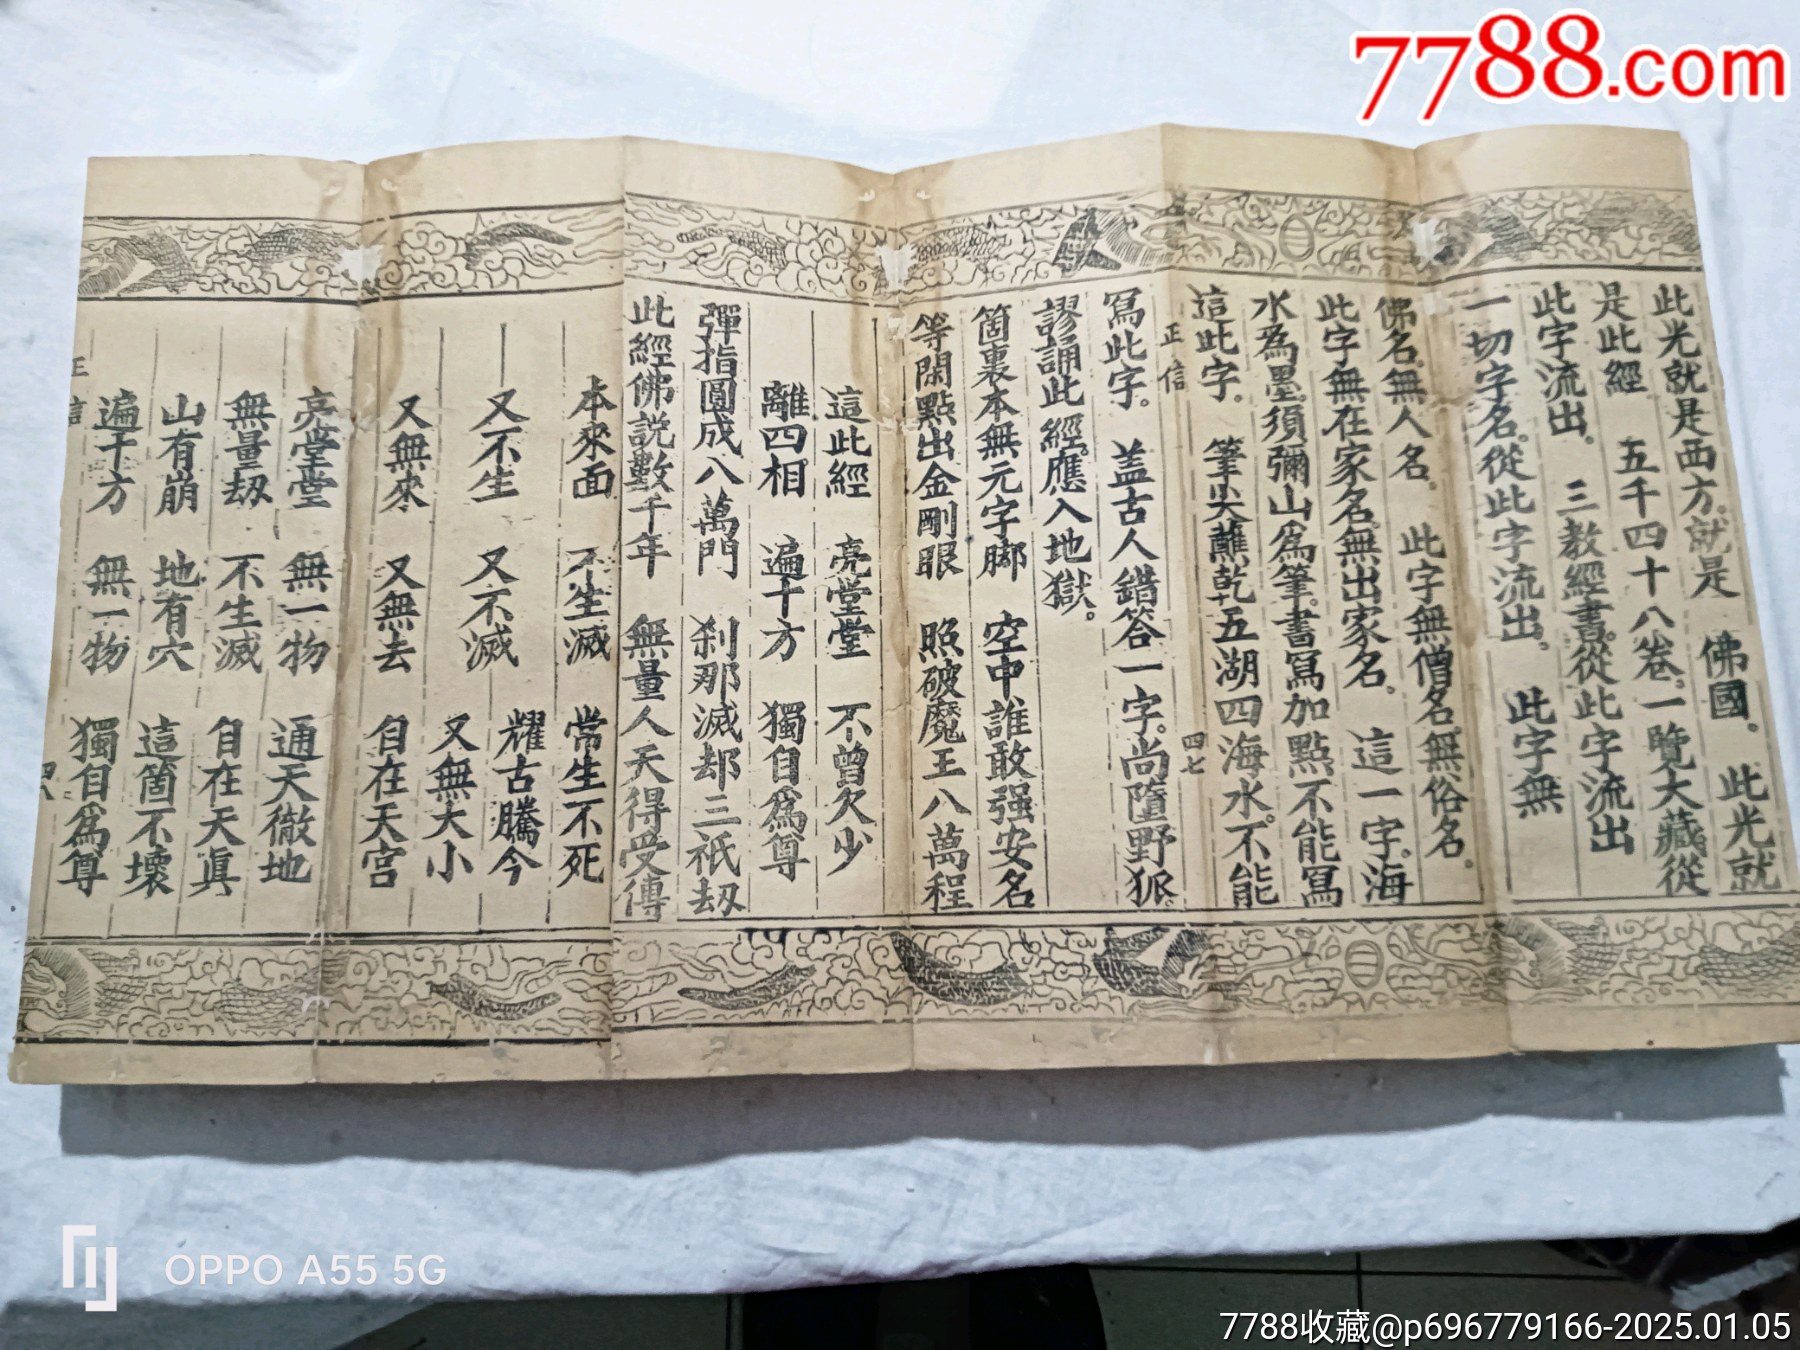 7788.com
此光就是西方就是　佛國。　此光就
是此經　五千四十八卷。一覽大藏從
此字流出。　三教經書。從此字流出
一切字名。從此字流出。　此字無
佛名。無人名。　此字無僧名。無俗名。
此字無在家名。無出家名。　這一字。海
水為墨。須彌山為筆。書寫加點不能寫
這此字。　筆尖蘸乾五湖四海水。不能
正信　四七
寫此字。　盖古人錯答一字。尚墮野狐。
謬誦此經。應入地獄。
箇裏本無元字脚　空中誰敢强安名
等閑點出金剛眼　照破魔王八萬程
這此經　亮堂堂　不曾欠少
離四相　遍十方　獨自為尊
彈指圓成八萬門　刹那滅却三祇刼
此經佛説數千年　無量人天得受傳
本來面　不生滅　常生不死
又不生　又不滅　耀古騰今
又無大小
又無來　又無去　自在天宫
亮堂堂　無一物　通天徹地
無量刼　不生滅　自在天真
山有崩　地有穴　這箇不壞
遍十方　無一物　獨自為尊
正信　四八
OPPO A55 5G
7788收藏@p696779166-2025.01.05